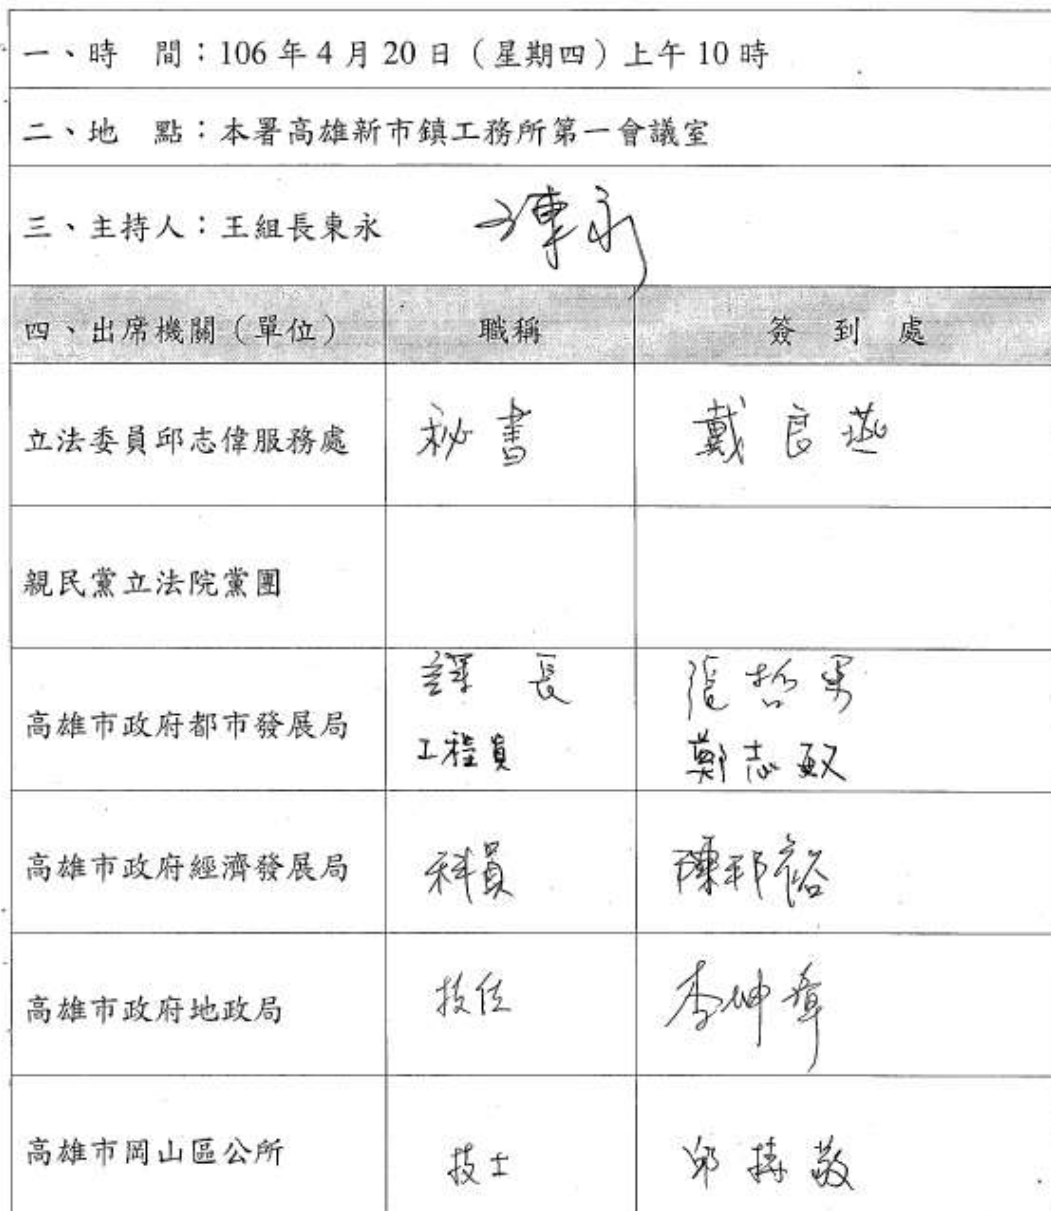 一、時　間：106 年 4 月 20 日（星期四）上午 10 時
二、地　點：本署高雄新市鎮工務所第一會議室
三、主持人：王組長東永 王東永
四、出席機關（單位） 職稱 簽 到 處
立法委員邱志偉服務處 秘書 戴良燕
親民黨立法院黨團
高雄市政府都市發展局 課長 張哲
工程員 鄭志敏
高雄市政府經濟發展局 科員 陳邦裕
高雄市政府地政局 技佐 李坤
高雄市岡山區公所 技士 邱 敬